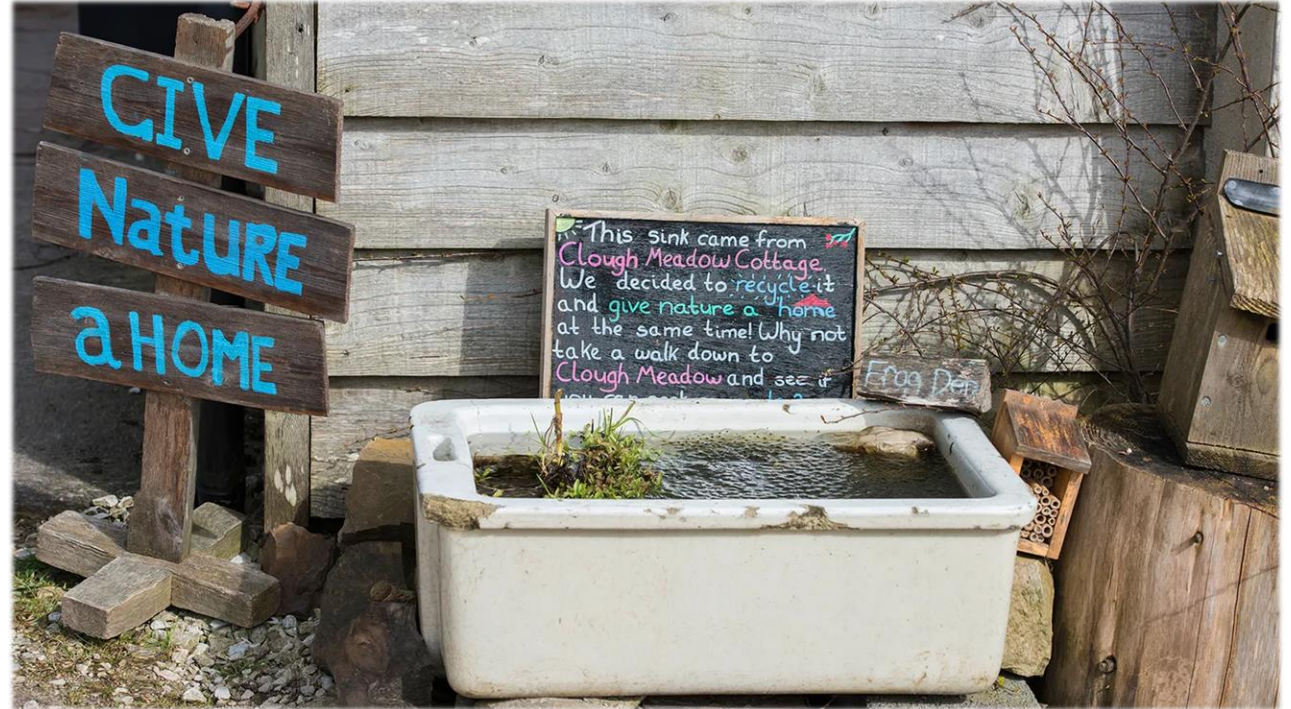 GIVE
NatURE
a HOME
This sink came from
Clough Meadow Cottage.
We decided to recycle it
and give nature a home
at the same time! Why not
take a walk down to
Clough Meadow and see if
you can
Frog Den